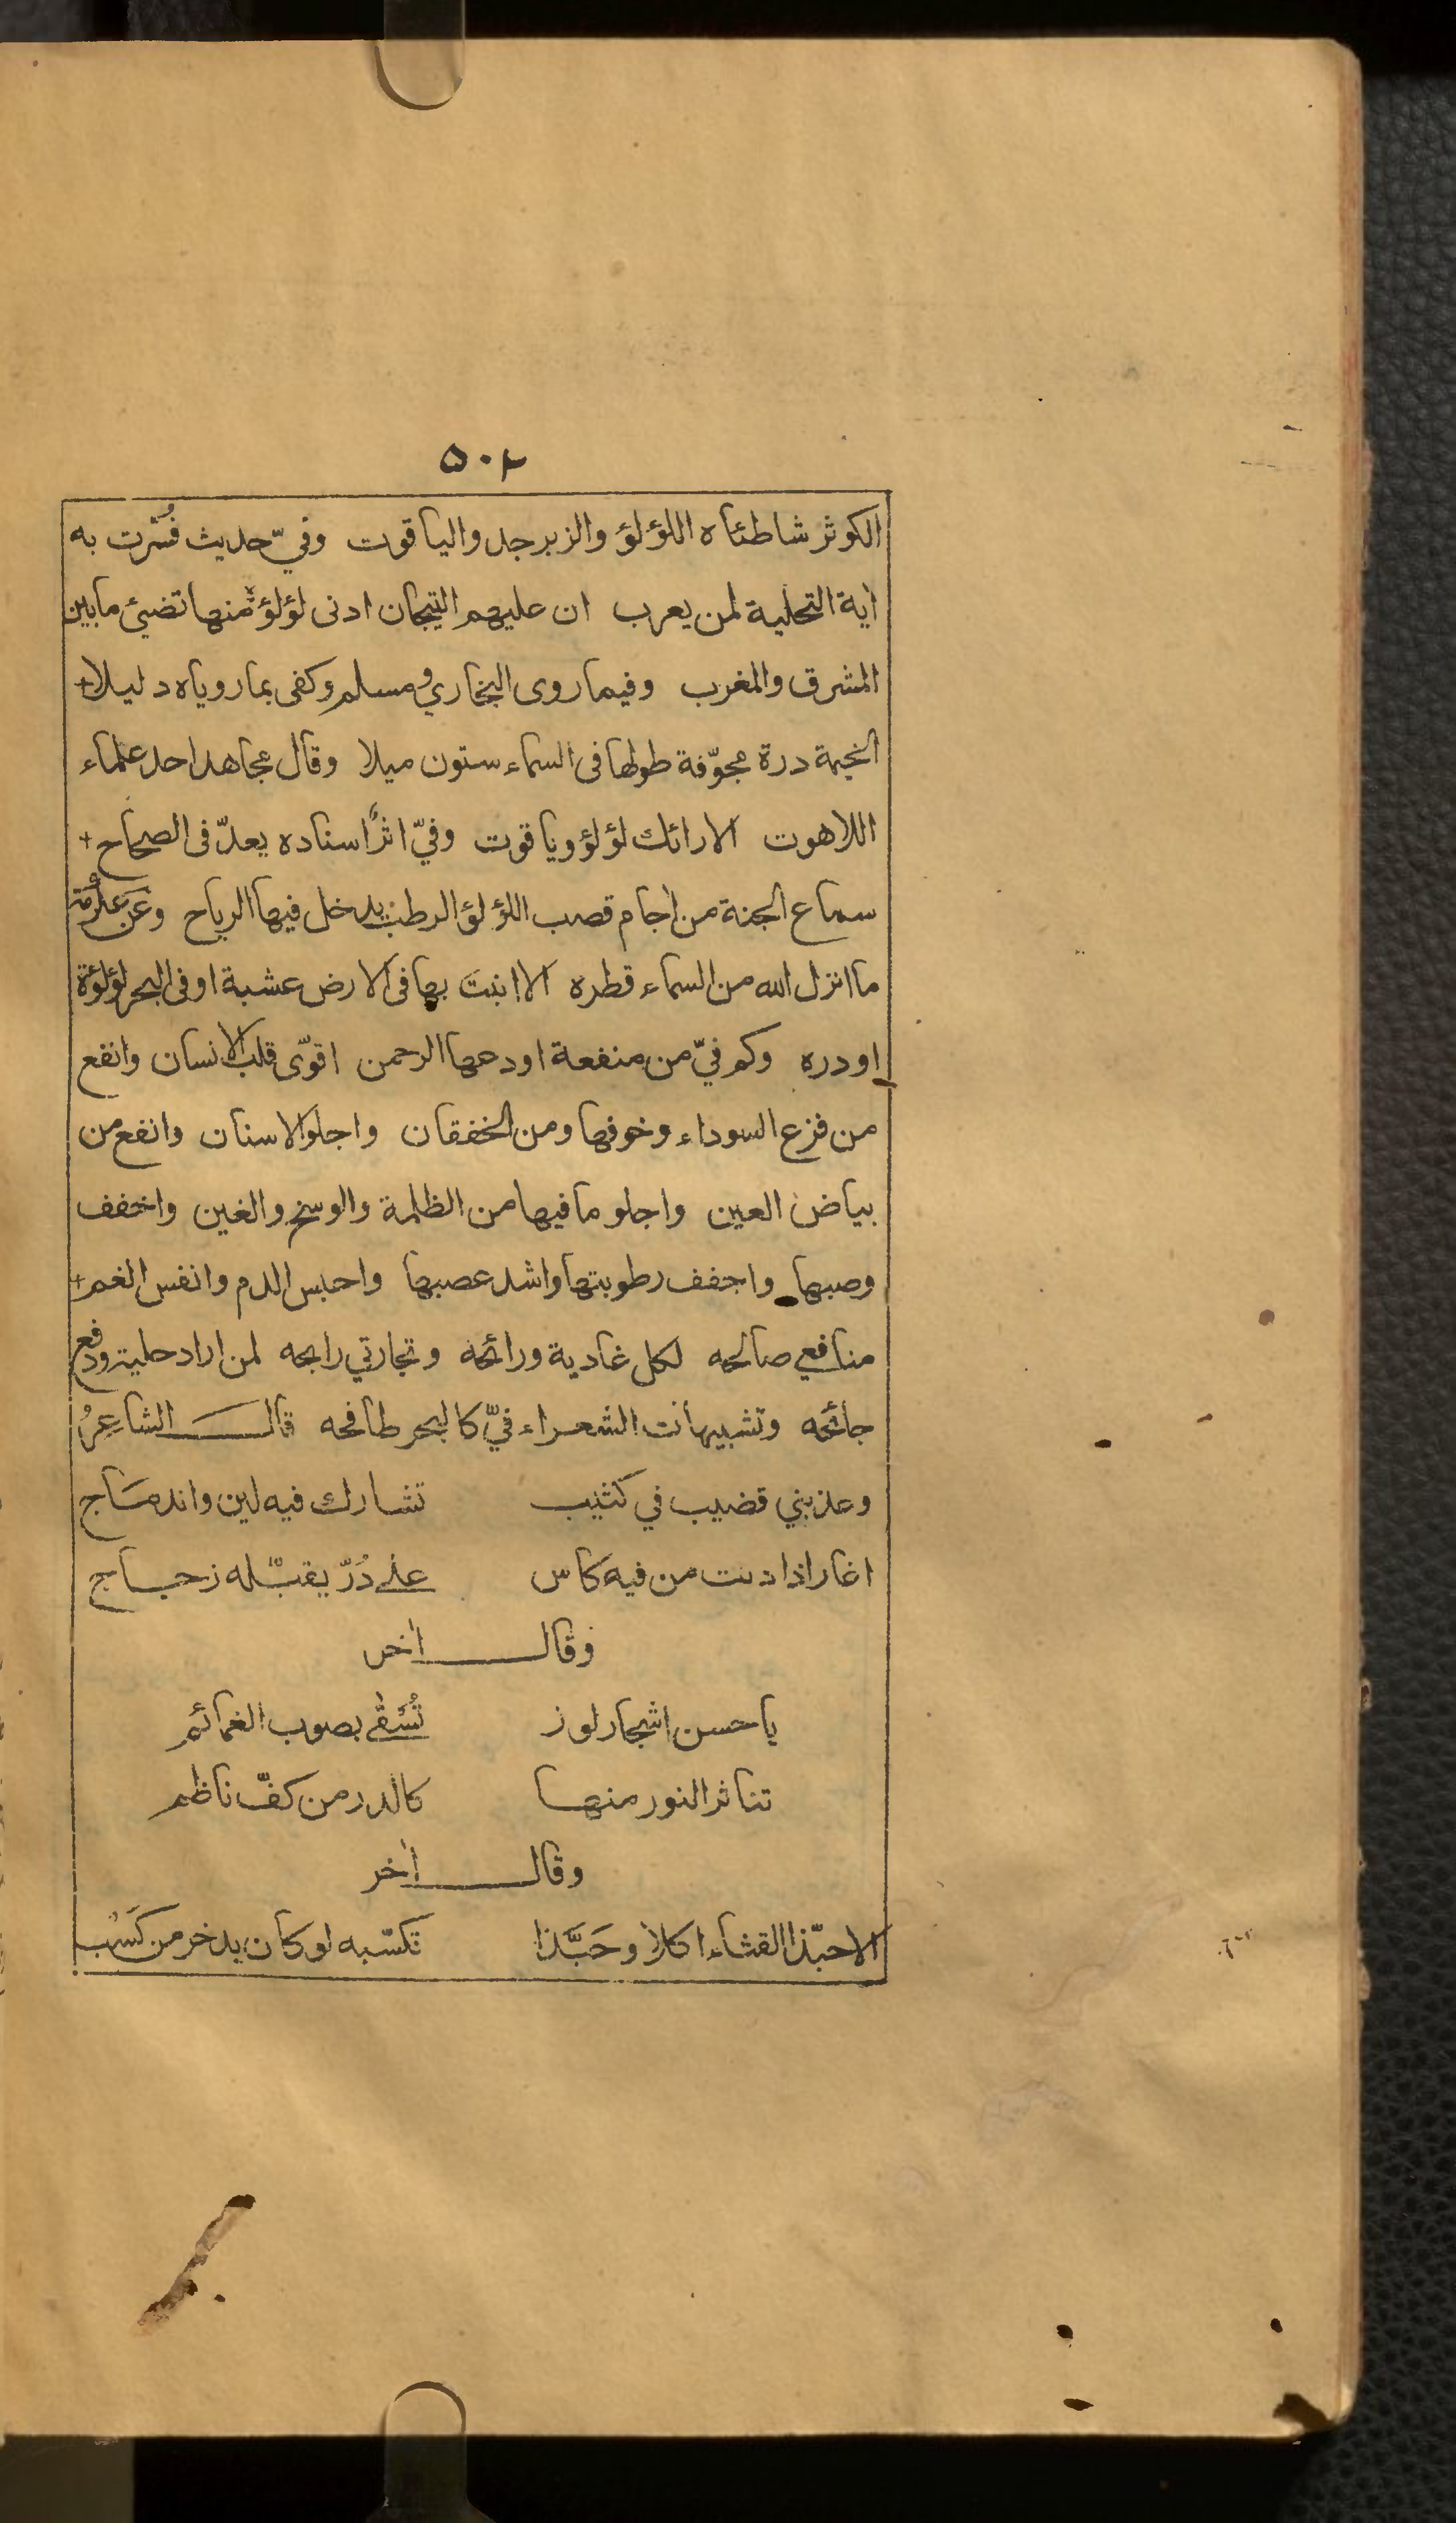 ٥٠٢
الكوثر شاطئاه اللؤلؤ والزبرجد والياقوت وفيّ حديث فُسّرت به
آية التحلية لمن يعرب ان عليهم التيجان ادنى لؤلؤة منها تضيئ مابين
المشرق والمغرب وفيما روى البخاري ومسلم وكفى بمارويا ه دليلا+
الخيمة درة مجوّفة طولها فى السماء ستون ميلا وقال مجاهد احد علماء
اللاهوت الارائك لؤلؤ وياقوت وفيّ اثرًا سناده يعدّ فى الصحاح+
سماع الجنة من اجام قصب اللؤلؤ الرطب يدخل فيها الرياح وعن عكرمة
ما انزل الله من السماء قطره الا انبت بها فى الارض عشبة او فى البحر لؤلؤة
او دره وكم فيّ من منفعة اودعها الرحمن اقوّى قلب الانسان وانفع
من فزع السوداء وخوفها ومن الخفقان واجلو الاسنان وانفع من
بياض العين واجلو ما فيها من الظلمة والوسخ والغين واخفف
وصبها واجفف رطوبتها واشد عصبها واحبس الدم وانفس الغم+
منافعي صالحه لكل غادية ورائحه وتجارتي رابحه لمن اراد حلية ودفع
جائحه وتشبيهات الشعراء فيّ كالبحر طافحه قال الشاعِرُ
وعذبني قضيب في كثيب تشارك فيه لين واندماج
اغار اذا دنت من فيه كاس على دُرّ يقبّله زجاج
وقال اخر
يا حسن اشجار لوز تُسْقٰى بصوب الغمائم
تناثر النور منها كالدر من كفّ ناظم
وقال اخر
الا حبّذا القثاء اكلا وحَبَّذا تكسّبه لو كان يدخر من كَسْب